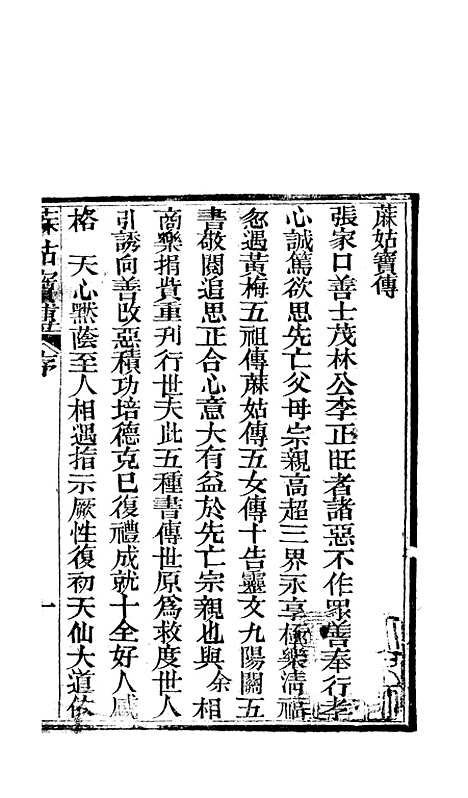 蔴姑寶傳
張家口善士茂林公李正旺者諸惡不作眾善奉行孝
心誠篤欲思先亡父母宗親高超三界永享極樂清福
忽遇黃梅五祖傳蔴姑傳五女傳十告靈文九陽關五
書敬閱追思正合心意大有益於先亡宗親也與余相
商樂捐貲重刊行世夫此五種書傳世原為救度世人
引誘向善改惡積功培德克已復禮成就十全好人感
格　天心默蔭至人相遇指示厥性復初天仙大道依
蔴姑寶傳 序 一